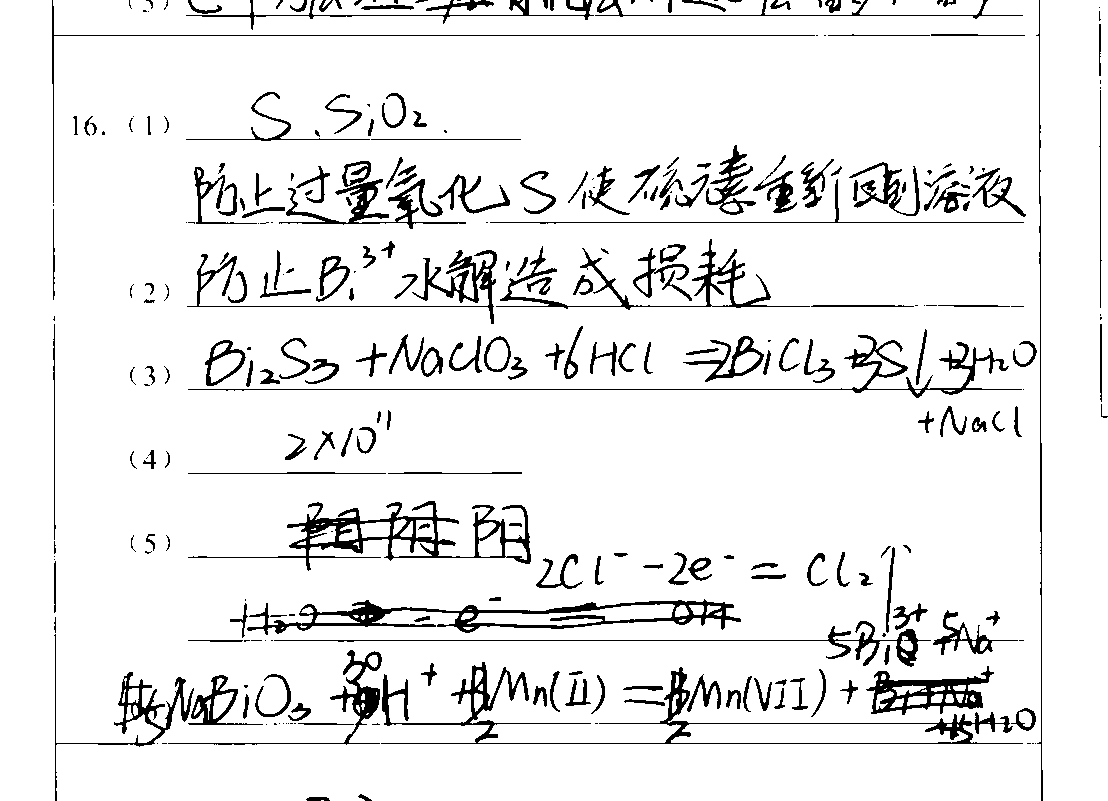 16.（1） S、SiO₂.
防止过量氧化S使硫元素重新回到溶液
（2） 防止Bi³⁺水解造成损耗
（3） Bi₂S₃ + NaClO₃ + 6HCl = 2BiCl₃ + 3S↓ + 3H₂O
+ NaCl
（4） 2×10¹¹
（5） 阳
2Cl⁻ - 2e⁻ = Cl₂↑
5Bi³⁺ + 5Na⁺
5NaBiO₃ + 30H⁺ + 2Mn(II) = 2Mn(VII) +
+15H₂O